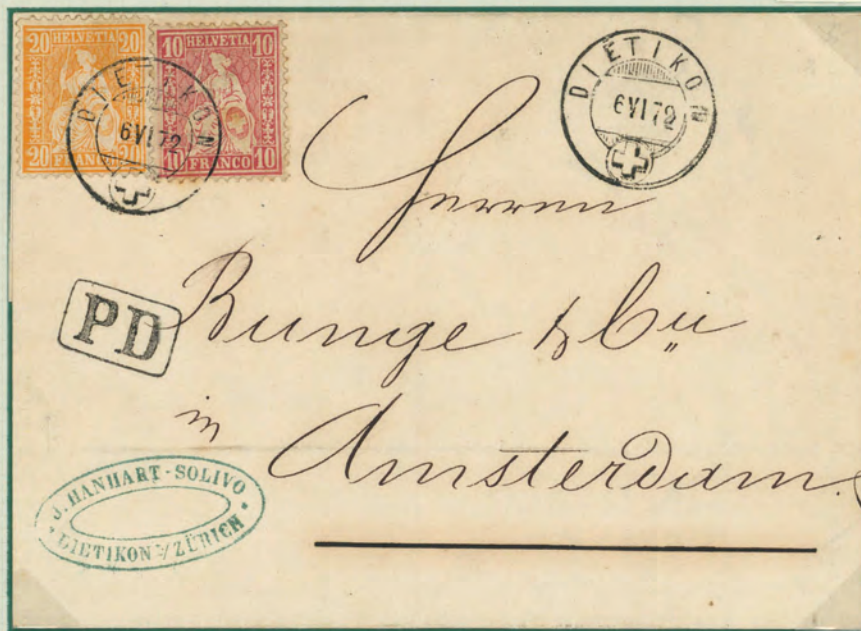 20 HELVETIA 20
20 FRANCO 20
10 HELVETIA 10
10 FRANCO 10
DIETIKON
6 VI 72
DIETIKON
6 VI 72
Herren
PD
Bunge & Cie
in
Amsterdam.
J. HANHART-SOLIVO
DIETIKON b/ZÜRICH